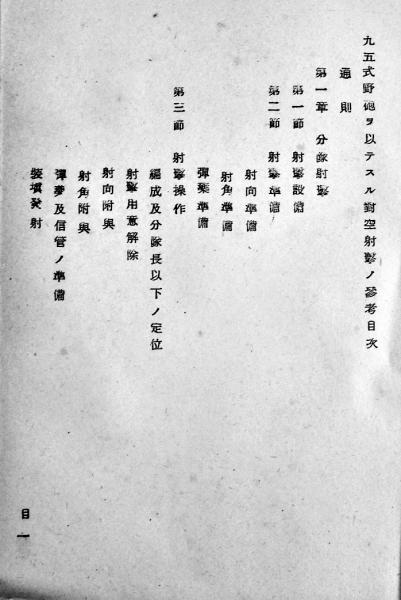 九五式野砲ヲ以テスル對空射擊ノ參考目次
通則
第一章 分隊射擊
第一節 射擊設備
第二節 射擊準備
射向準備
射角準備
彈藥準備
第三節 射擊操作
編成及分隊長以下ノ定位
射擊用意解除
射向附與
射角附與
彈藥及信管ノ準備
裝塡發射
目一